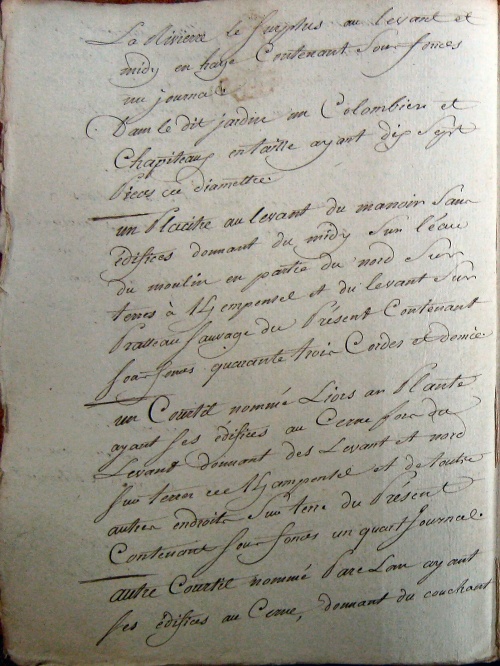 La Riviere le Surplus au levant et
midy en haye Contenant sou fonces
un journal
Dans le dit jardin un Colombier et
Chapiteaux en taille ayant dix Sept
Pieds de diamettre.
un Placitre au levant du manoir Sans
édifices donnant du midy Sur l'éau
du moulin en partie du nord Sur
terres à et du levant Sur
Prateau Sauvage du Présent Contenant
sou fonces quarante trois Cordes et demie
un Courtil nommé Liors an Plante
ayant Ses édifices au Cerne fors du
Levant donnant des Levant et nord
Sur terres de et de toutte
autre endroits Sur terre du Présent
Contenant sou fonces un quart Journal.
autre Courtil nommé Parc Lan ayant
Ses édifices au Cerne, donnant du couchant